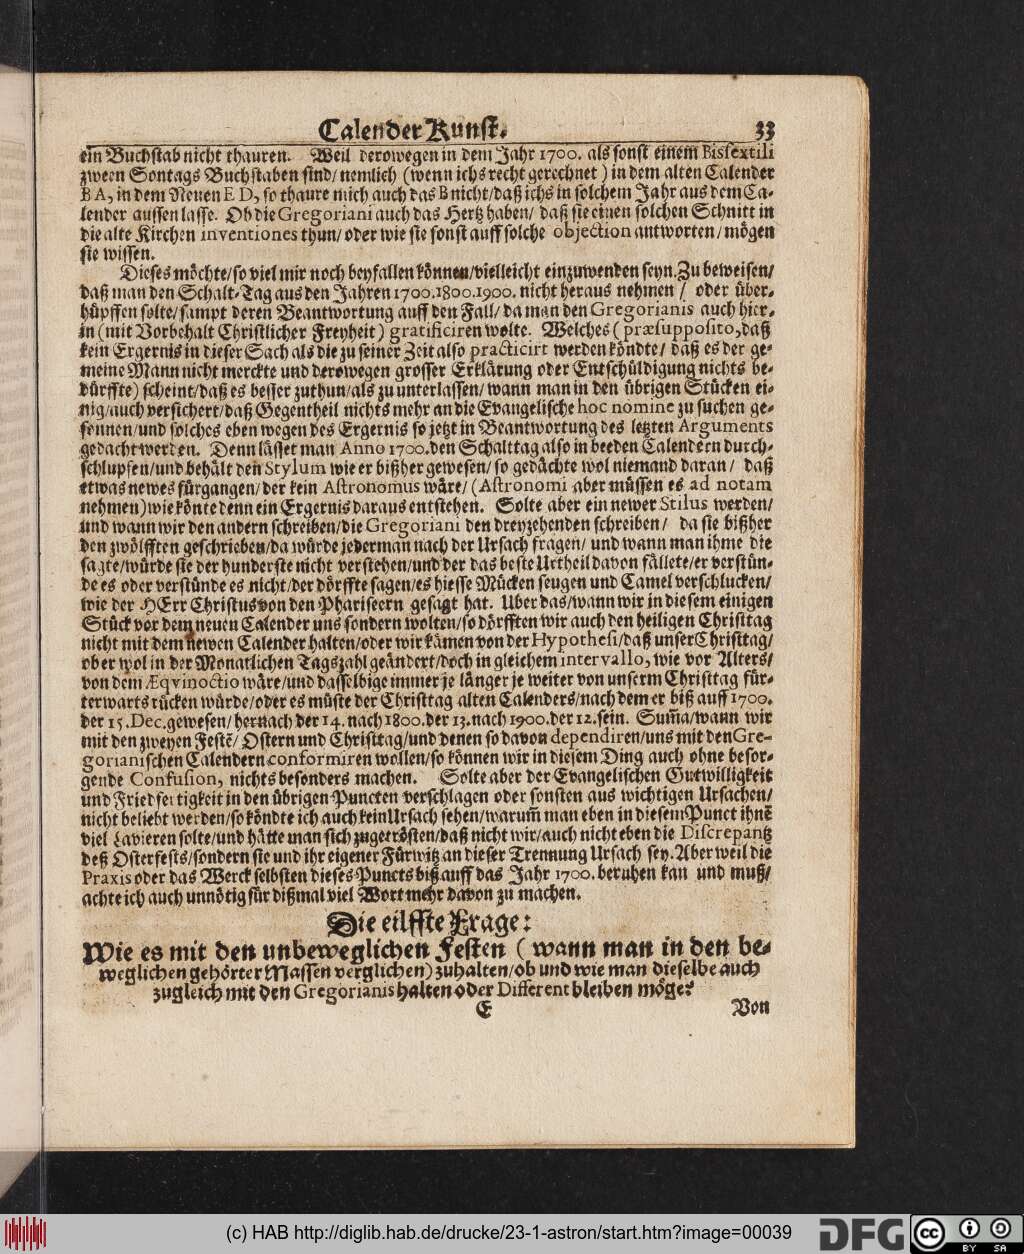 Calender Kunst. 33
ein Buchstab nicht thauren. Weil derowegen in dem Jahr 1700. als sonst einem Bissextili
zween Sontags Buchstaben sind/ nemlich (wenn ichs recht gerechnet) in dem alten Calender
B A, in dem Neuen E D, so thaure mich auch das B nicht/ daß ichs in solchem Jahr aus dem Ca-
lender aussen lasse. Ob die Gregoriani auch das Hertz haben/ daß sie einen solchen Schnitt in
die alte Kirchen inventiones thun/ oder wie sie sonst auff solche objection antworten/ mögen
sie wissen.
Dieses möchte/ so viel mir noch beyfallen können/ vielleicht einzuwenden seyn. Zu beweisen/
daß man den Schalt-Tag aus den Jahren 1700. 1800. 1900. nicht heraus nehmen / oder über-
hüpffen solte/ sampt deren Beantwortung auff den Fall/ da man den Gregorianis auch hier-
in (mit Vorbehalt Christlicher Freyheit) gratificiren wolte. Welches (præsupposito, daß
kein Ergernis in dieser Sach als die zu seiner Zeit also practicirt werden köndte/ daß es der ge-
meine Mann nicht merckte und derowegen grosser Erklärung oder Entschüldigung nichts be-
dürffte) scheint/ daß es besser zuthun/ als zu unterlassen/ wann man in den übrigen Stücken ei-
nig/ auch versichert/ daß Gegentheil nichts mehr an die Evangelische hoc nomine zu suchen ge-
sonnen/ und solches eben wegen des Ergernis so jetzt in Beantwortung des letzten Arguments
gedacht werden. Denn lässet man Anno 1700. den Schalttag also in beeden Calendern durch-
schlupfen/ und behält den Stylum wie er bißher gewesen/ so gedächte wol niemand daran / daß
etwas newes fürgangen/ der kein Astronomus wäre/ (Astronomi aber müssen es ad notam
nehmen) wie könte denn ein Ergernis daraus entstehen. Solte aber ein newer Stilus werden/
und wann wir den andern schreiben/ die Gregoriani den dreyzehenden schreiben / da sie bißher
den zwölfften geschrieben/ da würde jederman nach der Ursach fragen/ und wann man ihme die
sagte/ würde sie der hunderste nicht verstehen/ und der das beste Urtheil davon fällete/ er verstün-
de es oder verstünde es nicht/ der dörffte sagen/ es hiesse Mücken seugen und Camel verschlucken/
wie der HErr Christus von den Phariseern gesagt hat. Uber das/ wann wir in diesem einigen
Stück vor dem neuen Calender uns sondern wolten/ so dörfften wir auch den heiligen Christtag
nicht mit dem newen Calender halten/ oder wir kämen von der Hypothesi/ daß unser Christtag/
ober wol in der Monatlichen Tagszahl geändert/ doch in gleichem intervallo, wie vor Alters/
von dem Æqvinoctio wäre/ und dasselbige immer je länger je weiter von unserm Christtag für-
terwarts rücken würde/ oder es müste der Christtag alten Calenders/ nach dem er biß auff 1700.
der 15. Dec. gewesen/ hernach der 14. nach 1800. der 13. nach 1900. der 12. sein. Sum̃a/ wann wir
mit den zweyen Festẽ/ Ostern und Christtag/ und denen so davon dependiren/ uns mit den Gre-
gorianischen Calendern conformiren wollen/ so können wir in diesem Ding auch ohne besor-
gende Confusion, nichts besonders machen. Solte aber der Evangelischen Gutwilligkeit
und Friedfertigkeit in den übrigen Puncten verschlagen oder sonsten aus wichtigen Ursachen/
nicht beliebt werden/ so köndte ich auch kein Ursach sehen/ warum̃ man eben in diesem Punct ihnẽ
viel Lavieren solte/ und hätte man sich zugetrösten/ daß nicht wir/ auch nicht eben die Discrepantz
deß Osterfests/ sondern sie und ihr eigener Fürwitz an dieser Trennung Ursach sey. Aber weil die
Praxis oder das Werck selbsten dieses Puncts biß auff das Jahr 1700. beruhen kan und muß/
achte ich auch unnötig für dißmal viel Wort mehr davon zu machen.
Die eilffte Frage:
Wie es mit den unbeweglichen Festen ( wann man in den be-
weglichen gehörter Massen verglichen) zuhalten/ ob und wie man dieselbe auch
zugleich mit den Gregorianis halten oder Different bleiben möge?
E Von
(c) HAB http://diglib.hab.de/drucke/23-1-astron/start.htm?image=00039
DFG
cc BY SA